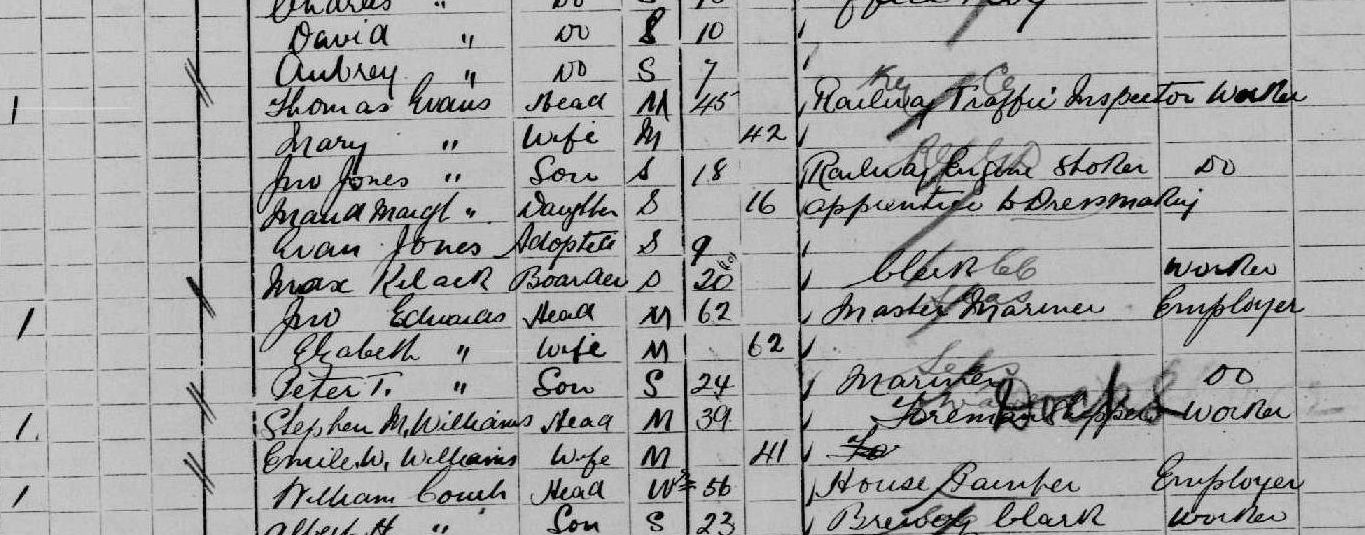 Charles " Do S
David " Do S 10
Aubrey " Do S 7
1 Thomas Evans Head M 45 Railway Traffic Inspector Worker
Mary " Wife M 42
Jno Jones " Son S 18 Railway Engine Stoker Do
Maud Margt " Daughter S 16 apprentice to Dressmaking
Evan Jones Adopted S 9
Max Boarder S 20 Clerk Worker
1 Jno Edwards Head M 62 Master Mariner Employer
Elizabeth " Wife M 62
Peter T. " Son S 24 Mariner Do
1. Stephen M. Williams Head M 39 Foreman Docks Worker
Emile W. Williams Wife M 41
1 William Couch Head Wr 56 House Painter Employer
Albert H " Son S 23 Brewery Clark Worker